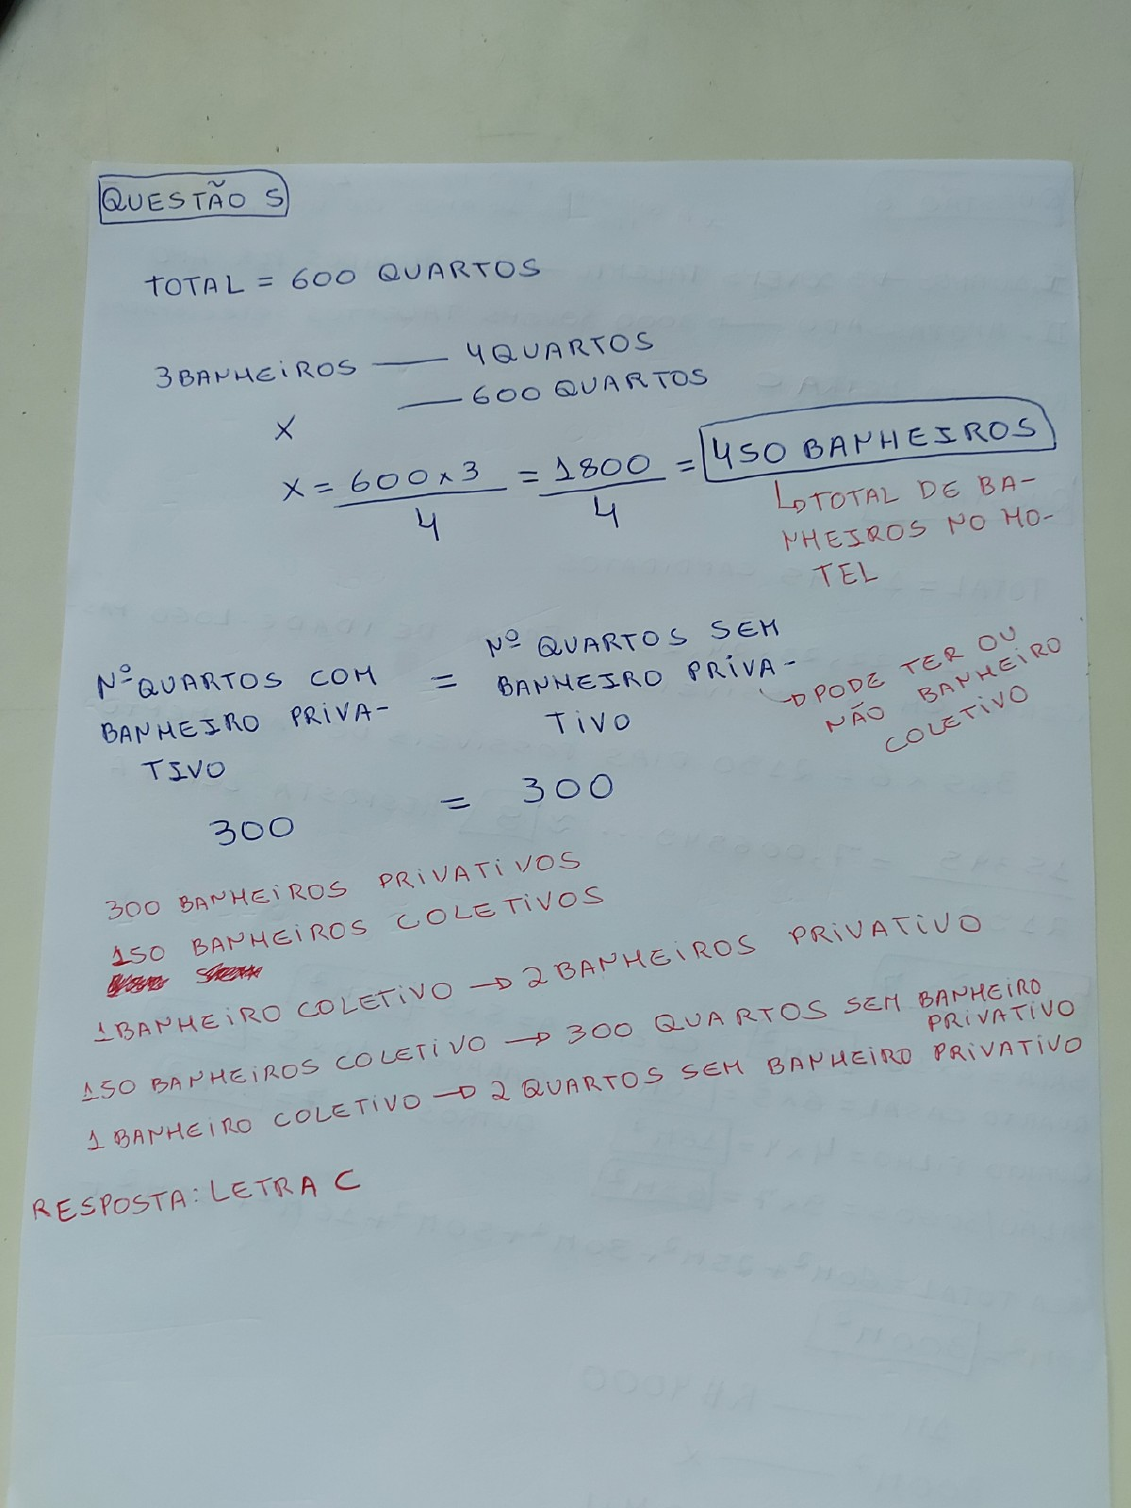 QUESTÃO 5
TOTAL = 600 QUARTOS
3 BANHEIROS — 4 QUARTOS
X — 600 QUARTOS
X = 600 x 3 / 4 = 1800 / 4 = 450 BANHEIROS
↳ TOTAL DE BA-
NHEIROS NO HO-
TEL
Nº QUARTOS COM
BANHEIRO PRIVA-
TIVO
=
Nº QUARTOS SEM
BANHEIRO PRIVA-
TIVO
↳ PODE TER OU
NÃO BANHEIRO
COLETIVO
300 = 300
300 BANHEIROS PRIVATIVOS
150 BANHEIROS COLETIVOS
1 BANHEIRO COLETIVO → 2 BANHEIROS PRIVATIVO
150 BANHEIROS COLETIVO → 300 QUARTOS SEM BANHEIRO
PRIVATIVO
1 BANHEIRO COLETIVO → 2 QUARTOS SEM BANHEIRO PRIVATIVO
RESPOSTA: LETRA C